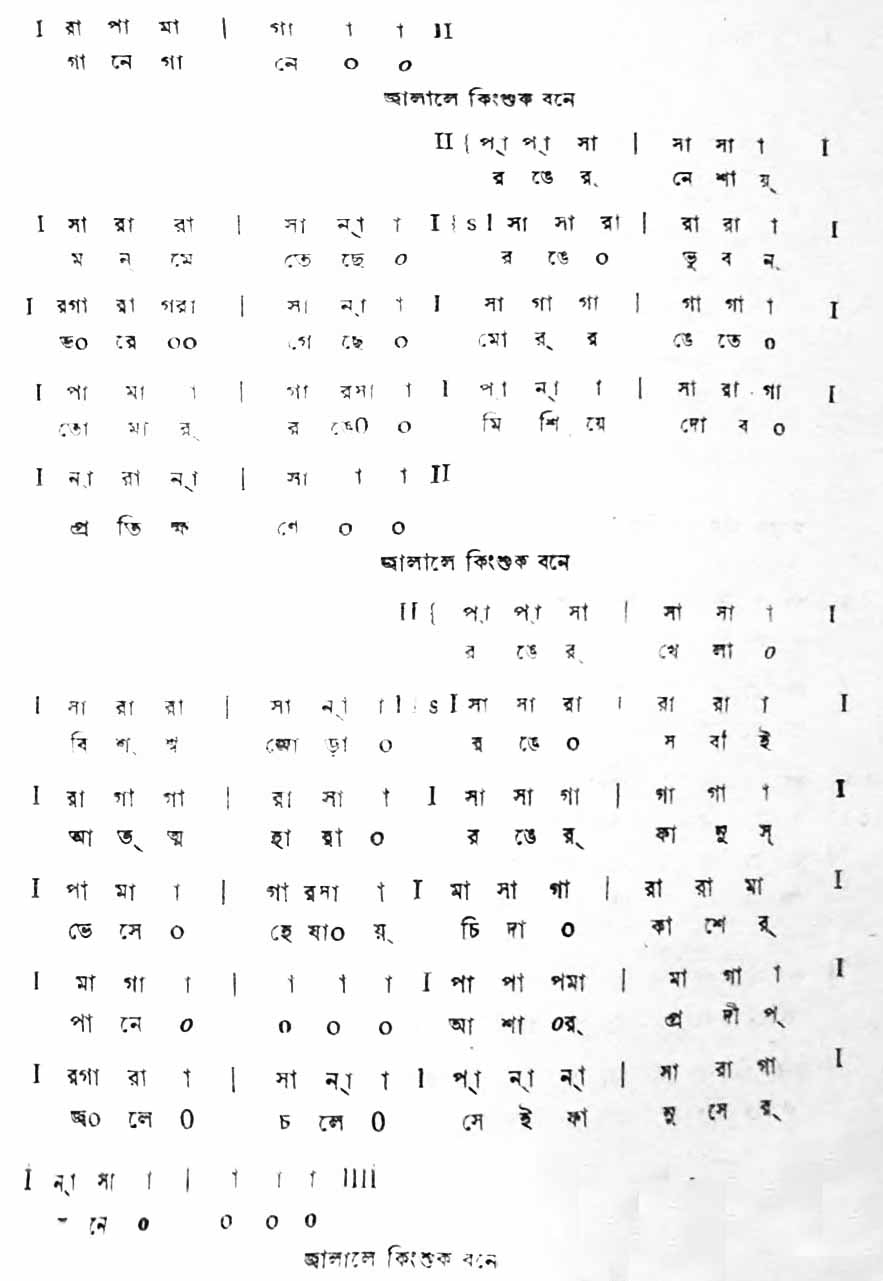 I রা পা মা | গা া া II
গা নে গা নে ০ ০
জ্বালালে কিংশুক বনে
II { প্‌া প্‌া সা | সা সা া I
র ঙে র্‌ নে শা য়্‌
I সা রা রা | সা ন্‌া া I } s I সা সা রা | রা রা া I
ম ন্‌ মে তে ছে ০ র ঙে ০ ভু ব ন্‌
I রগা রা গরা | সা ন্‌া া I সা গা গা | গা গা া I
ভ০ রে ০০ গে ছে ০ মো র্‌ র ঙে তে ০
I পা মা া | গা রসা া I প্‌া ন্‌া া | সা রা গা I
তো মা র্‌ র ঙে০ ০ মি শি য়ে দো ব ০
I ন্‌া রা ন্‌া | সা া া II
প্র তি ক্ষ ণে ০ ০
জ্বালালে কিংশুক বনে
II { প্‌া প্‌া সা | সা সা া I
র ঙে র্‌ খে লা ০
I সা রা রা | সা ন্‌া া I } s I সা সা রা | রা রা া I
বি শ্‌ শ্ব জো ড়া ০ র ঙে ০ স বা ই
I রা গা গা | রা সা া I সা সা গা | গা গা া I
আ ত্‌ ত্ম হা রা ০ র ঙে র্‌ ফা নু স্‌
I পা মা া | গা রসা া I মা সা গা | রা রা মা I
ভে সে ০ হে যা০ য়্‌ চি দা ০ কা শে র্‌
I মা গা া | া া া I পা পা পমা | মা গা া I
পা নে ০ ০ ০ ০ আ শা ০র্‌ প্র দী প্‌
I রগা রা া | সা ন্‌া া I প্‌া ন্‌া ন্‌া | সা রা গা I
জ্ব০ লে ০ চ লে ০ সে ই ফা নু সে র্‌
I ন্‌া সা া | া া া IIII
নে ০ ০ ০ ০
জ্বালালে কিংশুক বনে